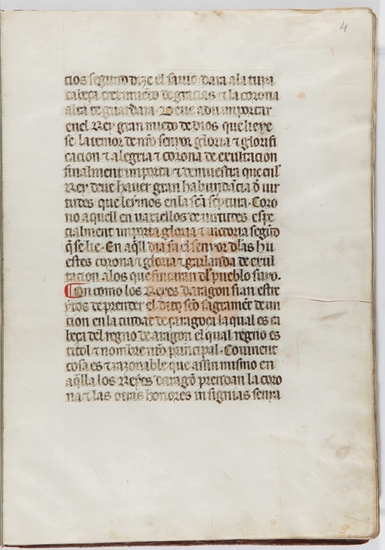 4
cios segund dize el savio dara a la tua
cabeça creximiento de gracias & la corona
alta te guardara
en el Rey gran miedo de dios que lieve
se la temor de nro senyor gloria & glorifi
cacion & alegria & corona de exultacion
finalment importa & demuestra que el
Rey deve haver gran habundancia d vir
tudes que leymos en la
no aquell en vaxiellos de virtudes espe
cialment importa gloria & victoria segund
que se lie. En aql dia sia el senyor d las hu
estes corona & gloria & garlanda de exul
tacion a los que fincaran dl pueblo suyo.
Con como los Reyes daragon sian estre
ytos de prender el dito sco sagrament de un
cion en la ciudat de çaragoça la qual es ca
beça del regno de aragon el qual regno es
titol & nombre nro principal. Convinent
cosa es & razonable que assin mismo en
aqlla los Reyes daragon prendan la coro
na & las otras honores insignias senra